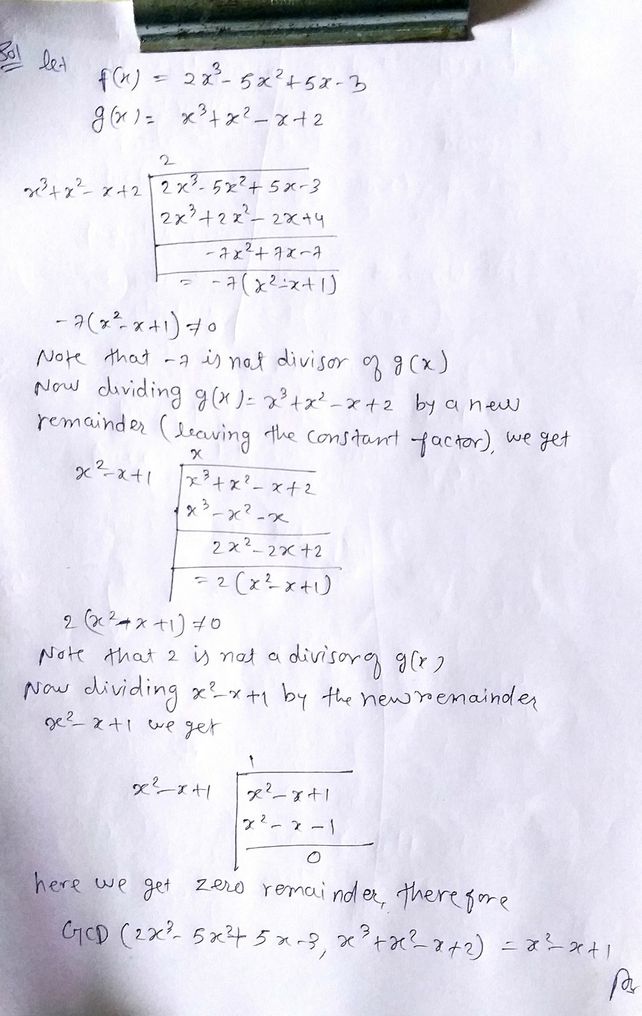 Sol let
f(x) = 2x³ - 5x² + 5x - 3
g(x) = x³ + x² - x + 2
2
x³ + x² - x + 2 2x³ - 5x² + 5x - 3
2x³ + 2x² - 2x + 4
-7x² + 7x - 7
= -7(x² - x + 1)
-7(x² - x + 1) ≠ 0
Note that -7 is not divisor of g(x)
Now dividing g(x) = x³ + x² - x + 2 by a new
remainder (leaving the constant factor), we get
x
x² - x + 1 x³ + x² - x + 2
x³ - x² - x
2x² - 2x + 2
= 2(x² - x + 1)
2(x² - x + 1) ≠ 0
Note that 2 is not a divisor of g(x)
Now dividing x² - x + 1 by the new remainder
x² - x + 1 we get
1
x² - x + 1 x² - x + 1
x² - x - 1
0
here we get zero remainder, therefore
GCD (2x³ - 5x² + 5x - 3, x³ + x² - x + 2) = x² - x + 1